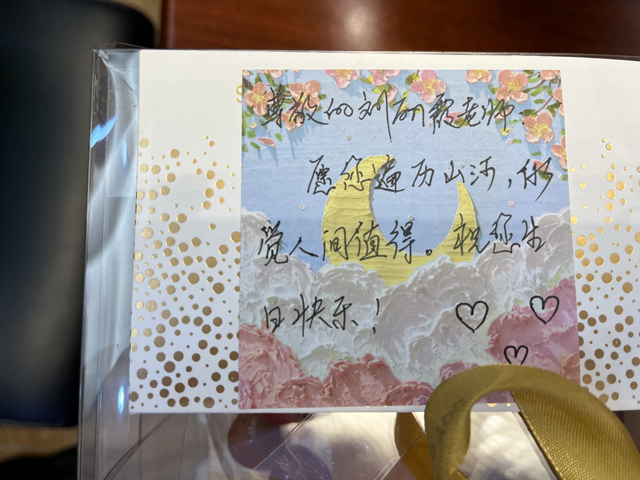 尊敬的刘研歌老师
愿您遍历山河,仍
觉人间值得。祝您生
日快乐!